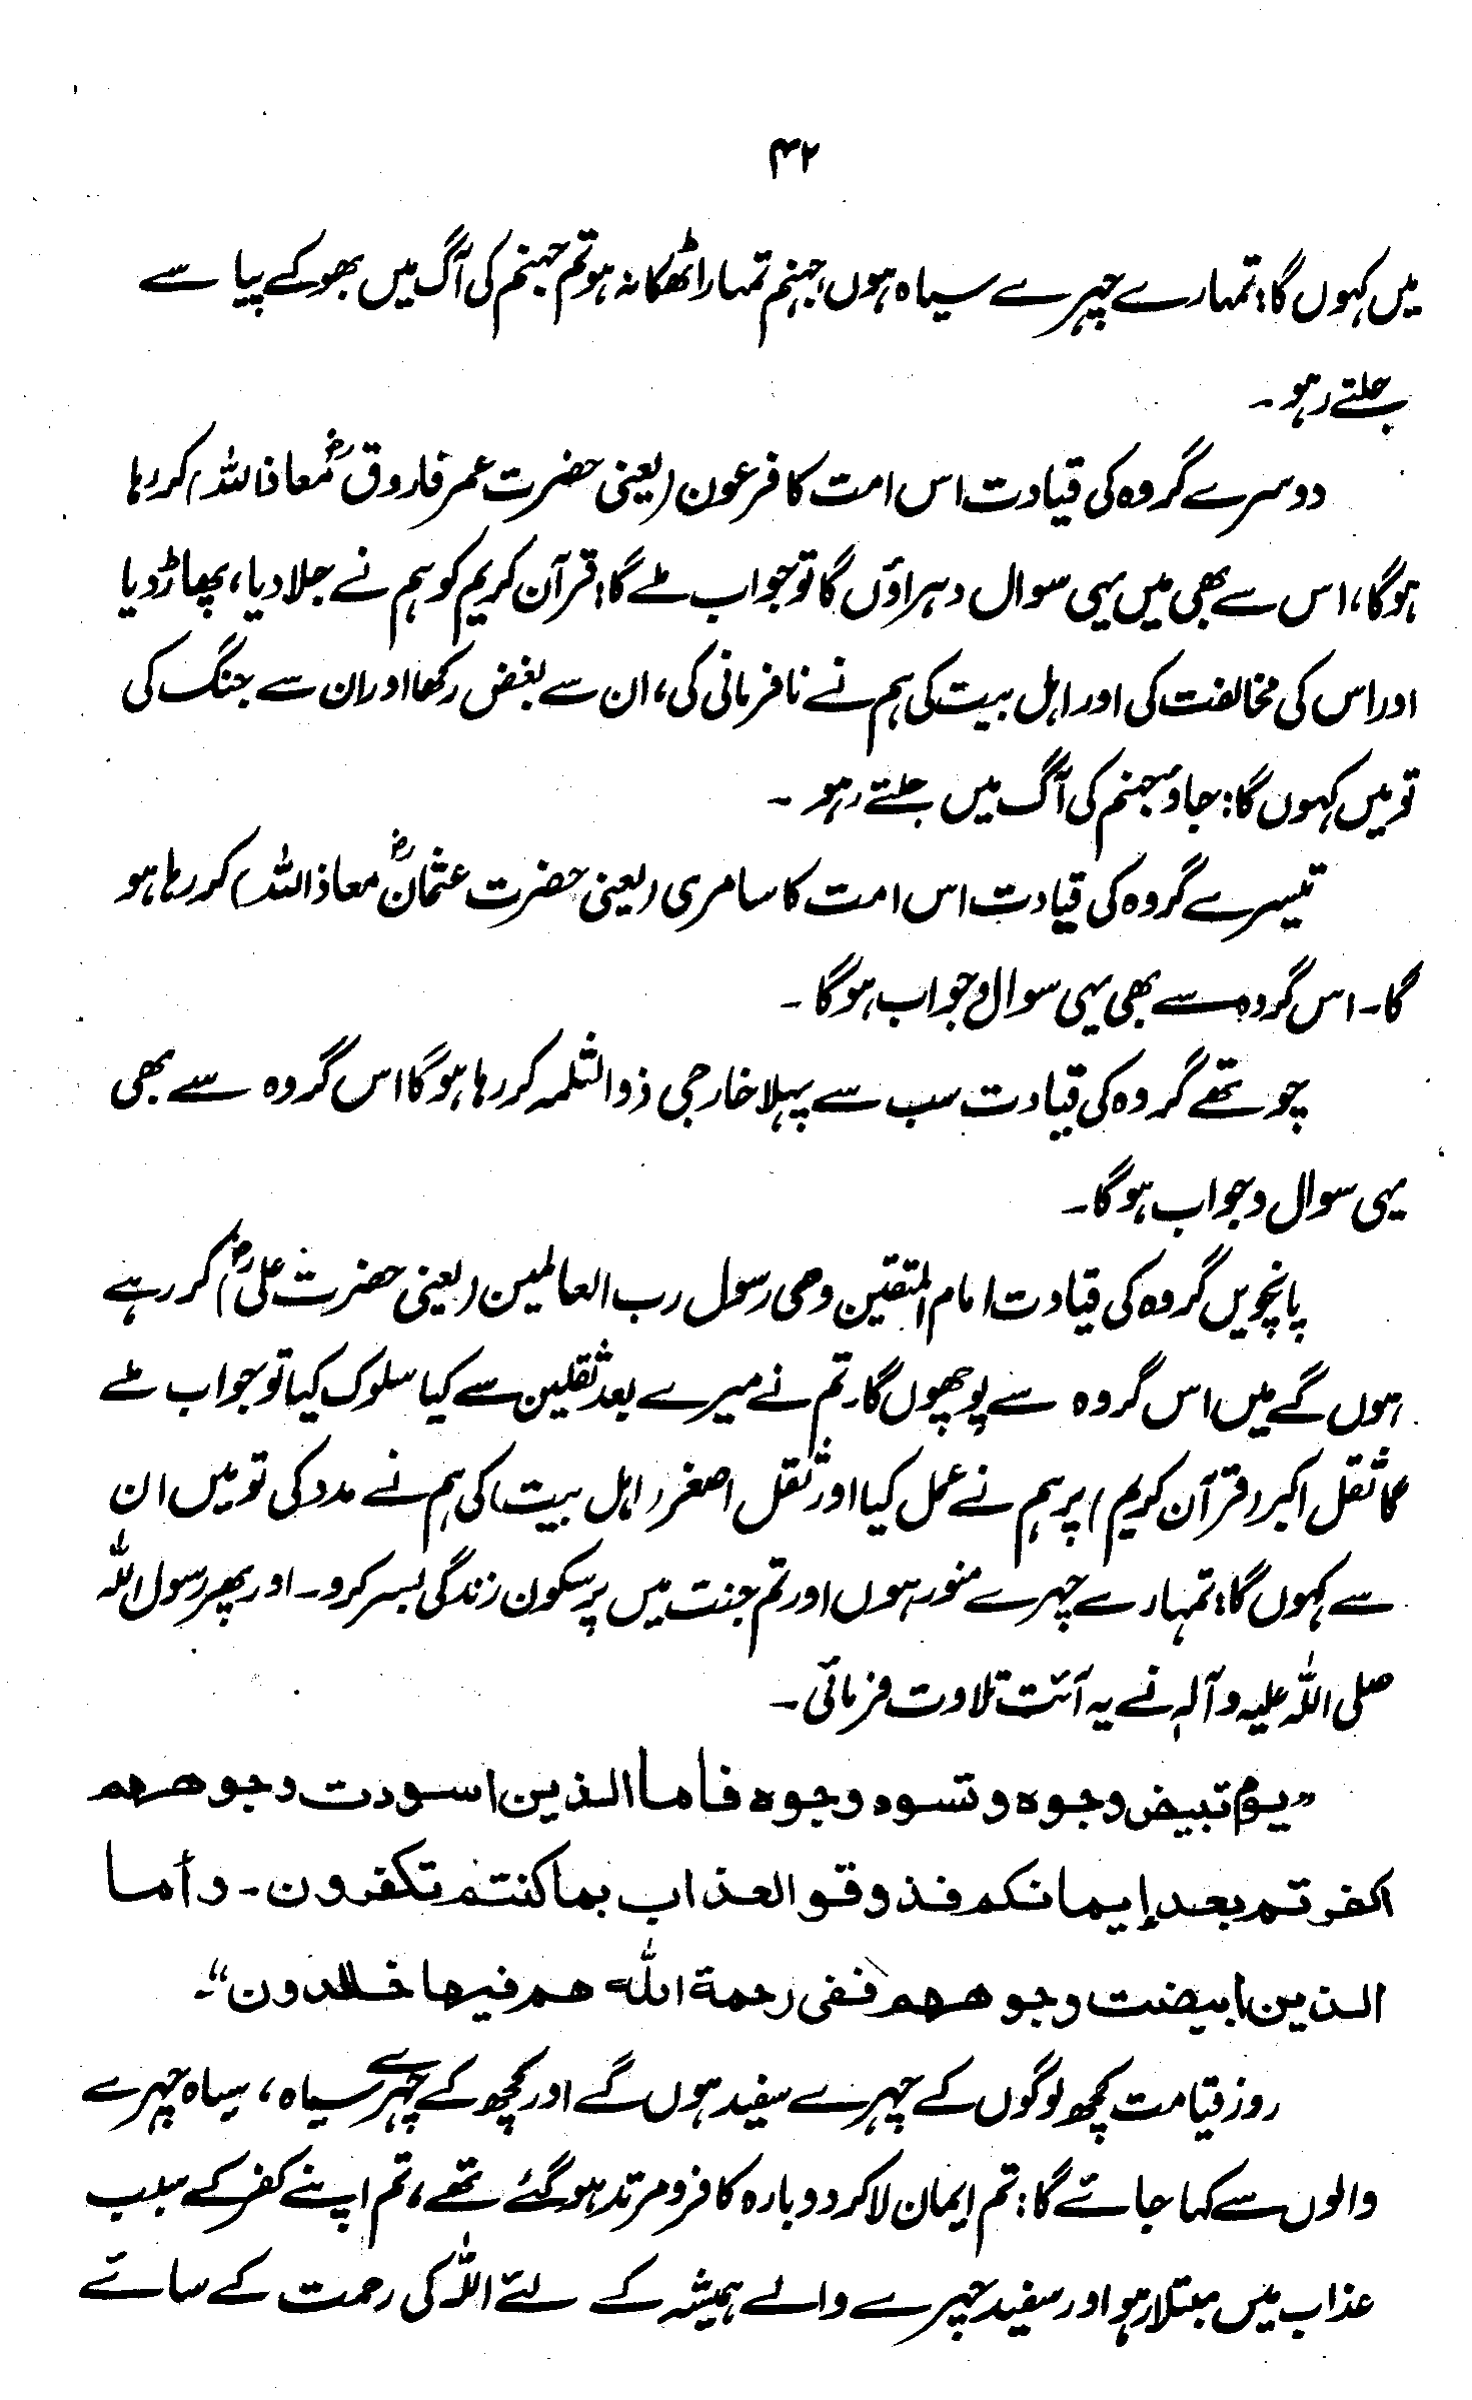 ۴۲
میں کہوں گا: تمہارے چہرے سیاہ ہوں، جہنم تمہارا ٹھکانہ ہو تم جہنم کی آگ میں بھوکے پیاسے
جلتے رہو۔
دوسرے گروہ کی قیادت اس امت کا فرعون (یعنی حضرت عمر فاروقؓ معاذاللہ) کر رہا
ہوگا، اس سے بھی میں یہی سوال دہراؤں گا تو جواب ملے گا: قرآن کریم کو ہم نے جلا دیا، پھاڑ دیا
اور اس کی مخالفت کی اور اہل بیت کی ہم نے نافرمانی کی، ان سے بغض رکھا اور ان سے جنگ کی
تو میں کہوں گا: جاؤ جہنم کی آگ میں جلتے رہو۔
تیسرے گروہ کی قیادت اس امت کا سامری (یعنی حضرت عثمانؓ معاذ اللہ) کر رہا ہو
گا۔ اس گروہ سے بھی یہی سوال و جواب ہوگا۔
چوتھے گروہ کی قیادت سب سے پہلا خارجی ذوالثلمہ کر رہا ہوگا اس گروہ سے بھی
یہی سوال و جواب ہوگا۔
پانچویں گروہ کی قیادت امام المتقین وصی رسول رب العالمین (یعنی حضرت علیؓ) کر رہے
ہوں گے میں اس گروہ سے پوچھوں گا۔ تم نے میرے بعد ثقلین سے کیا سلوک کیا تو جواب ملے
گا ثقل اکبر (قرآن کریم) پر ہم نے عمل کیا اور ثقل اصغر (اہل بیت) کی ہم نے مدد کی تو میں ان
سے کہوں گا: تمہارے چہرے منور ہوں اور تم جنت میں پرسکون زندگی بسر کرو۔ اور پھر رسول اللہ
صلی اللہ علیہ و آلہ نے یہ آئت تلاوت فرمائی۔
”یوم تبیض وجوہ و تسود وجوہ فاما الذین اسودت وجوههم
اکفرتم بعد إیمانکم فذوقوا العذاب بما کنتم تکفرون - وأما
الذین ابیضت وجوههم ففی رحمة اللہ هم فیها خالدون“۔
روز قیامت کچھ لوگوں کے چہرے سفید ہوں گے اور کچھ کے چہرے سیاہ، سیاہ چہرے
والوں سے کہا جائے گا: تم ایمان لا کر دوبارہ کافر و مرتد ہو گئے تھے، تم اپنے کفر کے سبب
عذاب میں مبتلا رہو اور سفید چہرے والے ہمیشہ کے لئے اللہ کی رحمت کے سائے